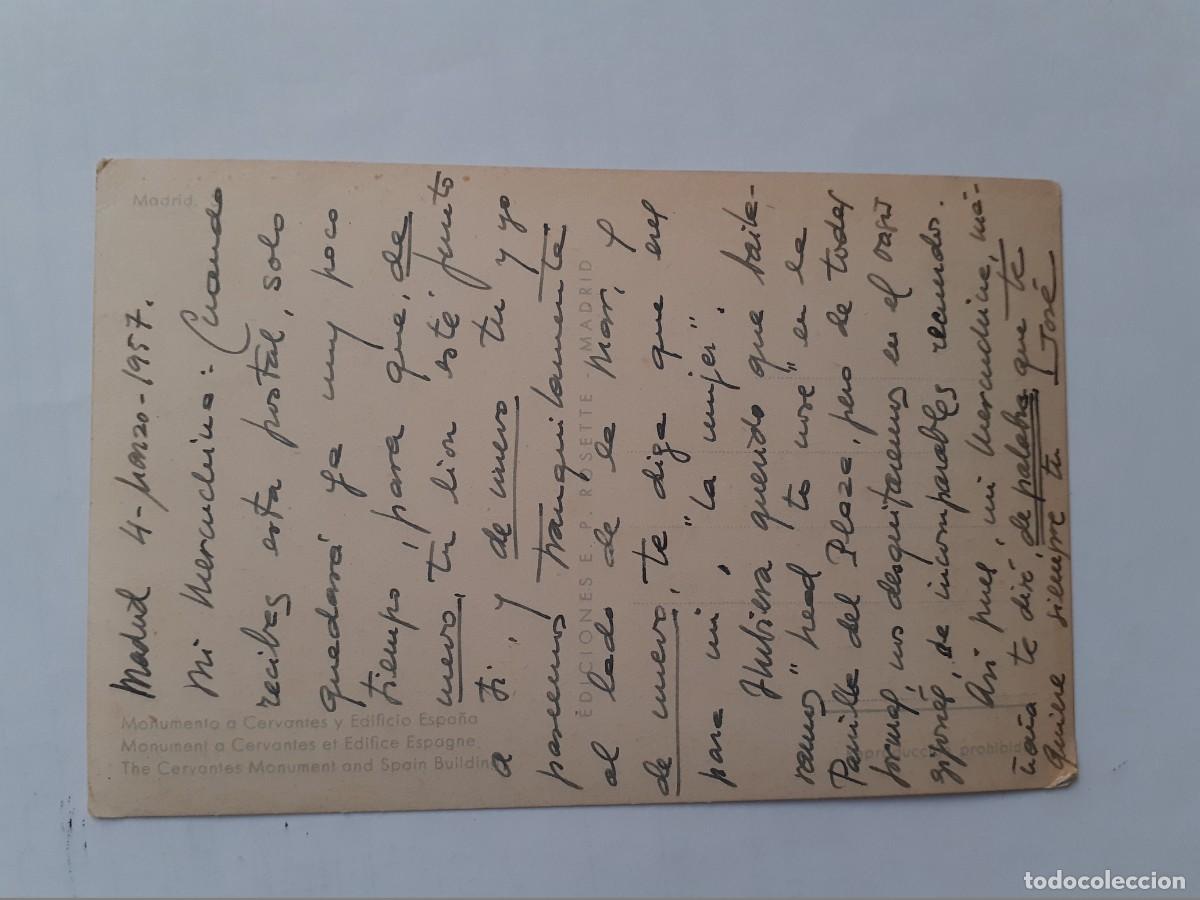 Madrid.
Madrid 4-marzo-1957.
Mi Merucluina: Cuando
recibas esta postal, solo
quedará ya muy poco
tiempo para que, de
nuevo, tu lion esté junto
a ti, y de nuevo tu y yo
paseemos tranquilamente
al lado de la Mar, y
de nuevo, te diga que eres
para mi, "la mujer".
Hubiera querido que baila-
ramos en la
Parrilla del Plaza, pero de todas
formas, nos desquitaremos en el
gijonés, de incomparables recuerdos.
Asi pues, mi Merucluine, ma-
ñana te diré de palabra que te
quiere siempre tu José
EDICIONES E. P. ROSETTE - MADRID
Monumento a Cervantes y Edificio España
Monument a Cervantes et Edifice Espagne
The Cervantes Monument and Spain Building
prohibida
todocoleccion